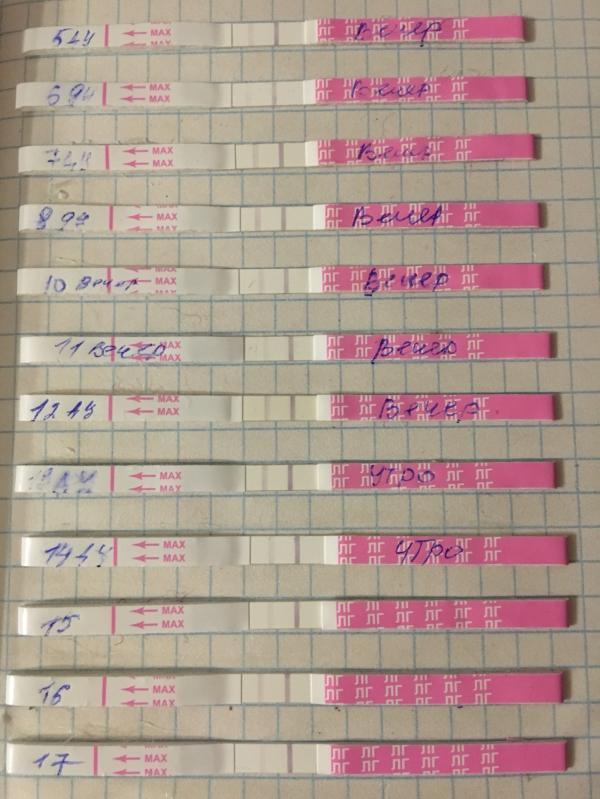 5 ДЦ MAX Вечер
MAX
6 ДЦ MAX Вечер
MAX
7 ДЦ MAX Вечер
MAX
8 MAX Вечер
MAX
10 Вечер MAX Вечер
MAX
11 Вечер MAX Вечер
MAX
12 ДЦ MAX Вечер
MAX
13 ДЦ MAX Утро
MAX
14 ДЦ MAX Утро
MAX
15 MAX ЛГ ЛГ ЛГ ЛГ ЛГ ЛГ
MAX ЛГ ЛГ ЛГ ЛГ ЛГ ЛГ
16 MAX ЛГ ЛГ ЛГ ЛГ ЛГ ЛГ
MAX ЛГ ЛГ ЛГ ЛГ ЛГ ЛГ
17 MAX ЛГ ЛГ ЛГ ЛГ ЛГ ЛГ
MAX ЛГ ЛГ ЛГ ЛГ ЛГ ЛГ